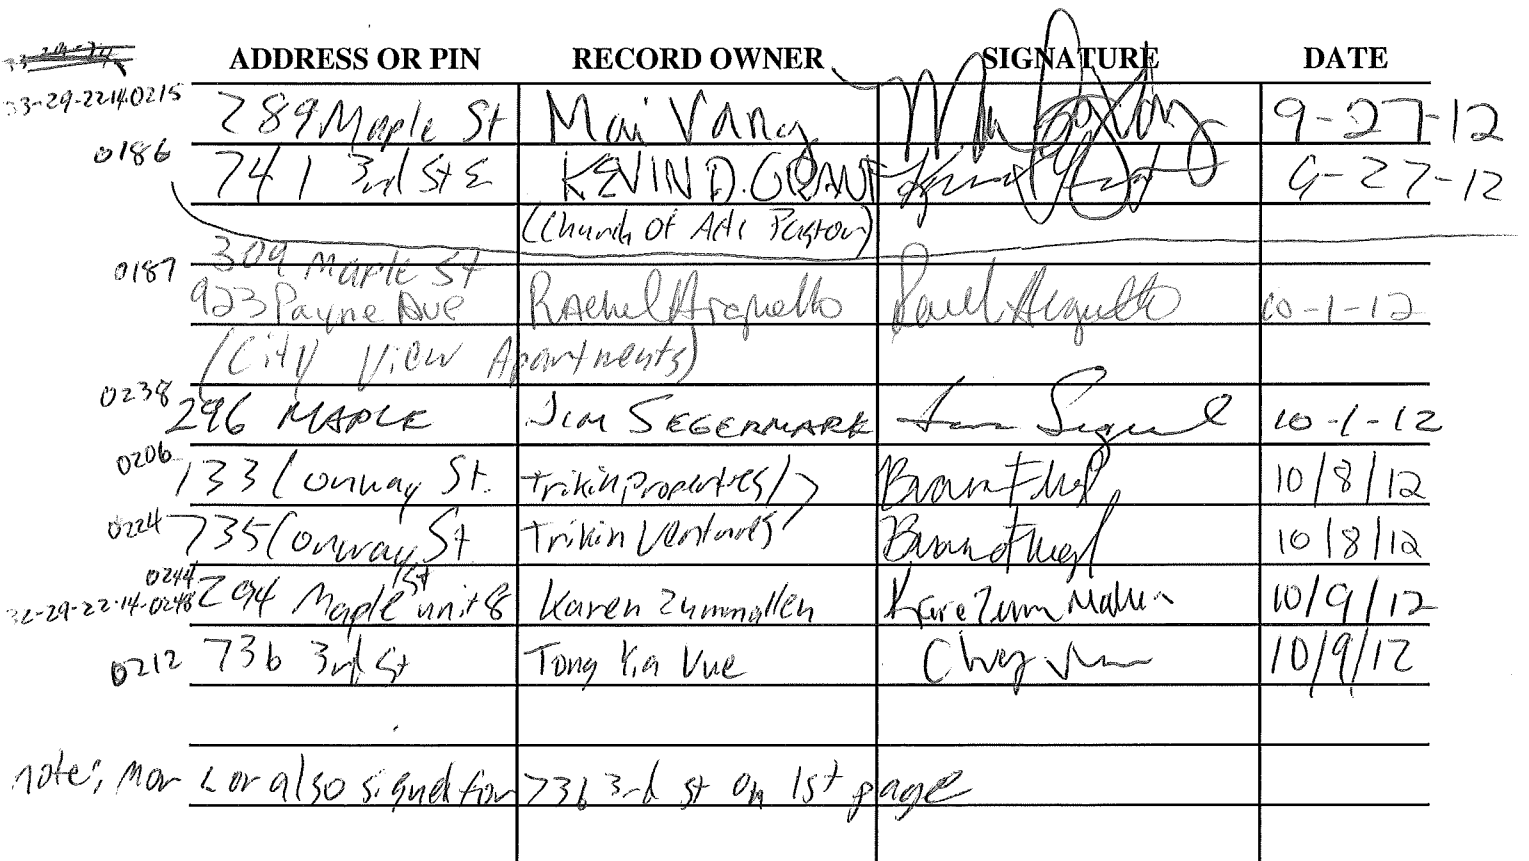 ADDRESS OR PIN RECORD OWNER SIGNATURE DATE
33-29-22-14.0215 289 Maple St Mai Vang 9-27-12
0186 741 3rd St E KEVIN D. GRANT 9-27-12
(Church of Pastor)
0187 309 Maple St
923 Payne Ave Rachel Arguello 10-1-12
(City View Apartments)
0238 296 MAPLE JIM SEGERMARK 10-1-12
0206 733 Conway St. Trikin Properties 10/8/12
0224 735 Conway St Trikin Ventures 10/8/12
0244
32-29-22-14-0248 294 Maple St unit 8 Karen Zummallen 10/9/12
0212 736 3rd St Tong Yia Vue 10/9/12
note; Mor Lor also signed for 736 3rd st on 1st page